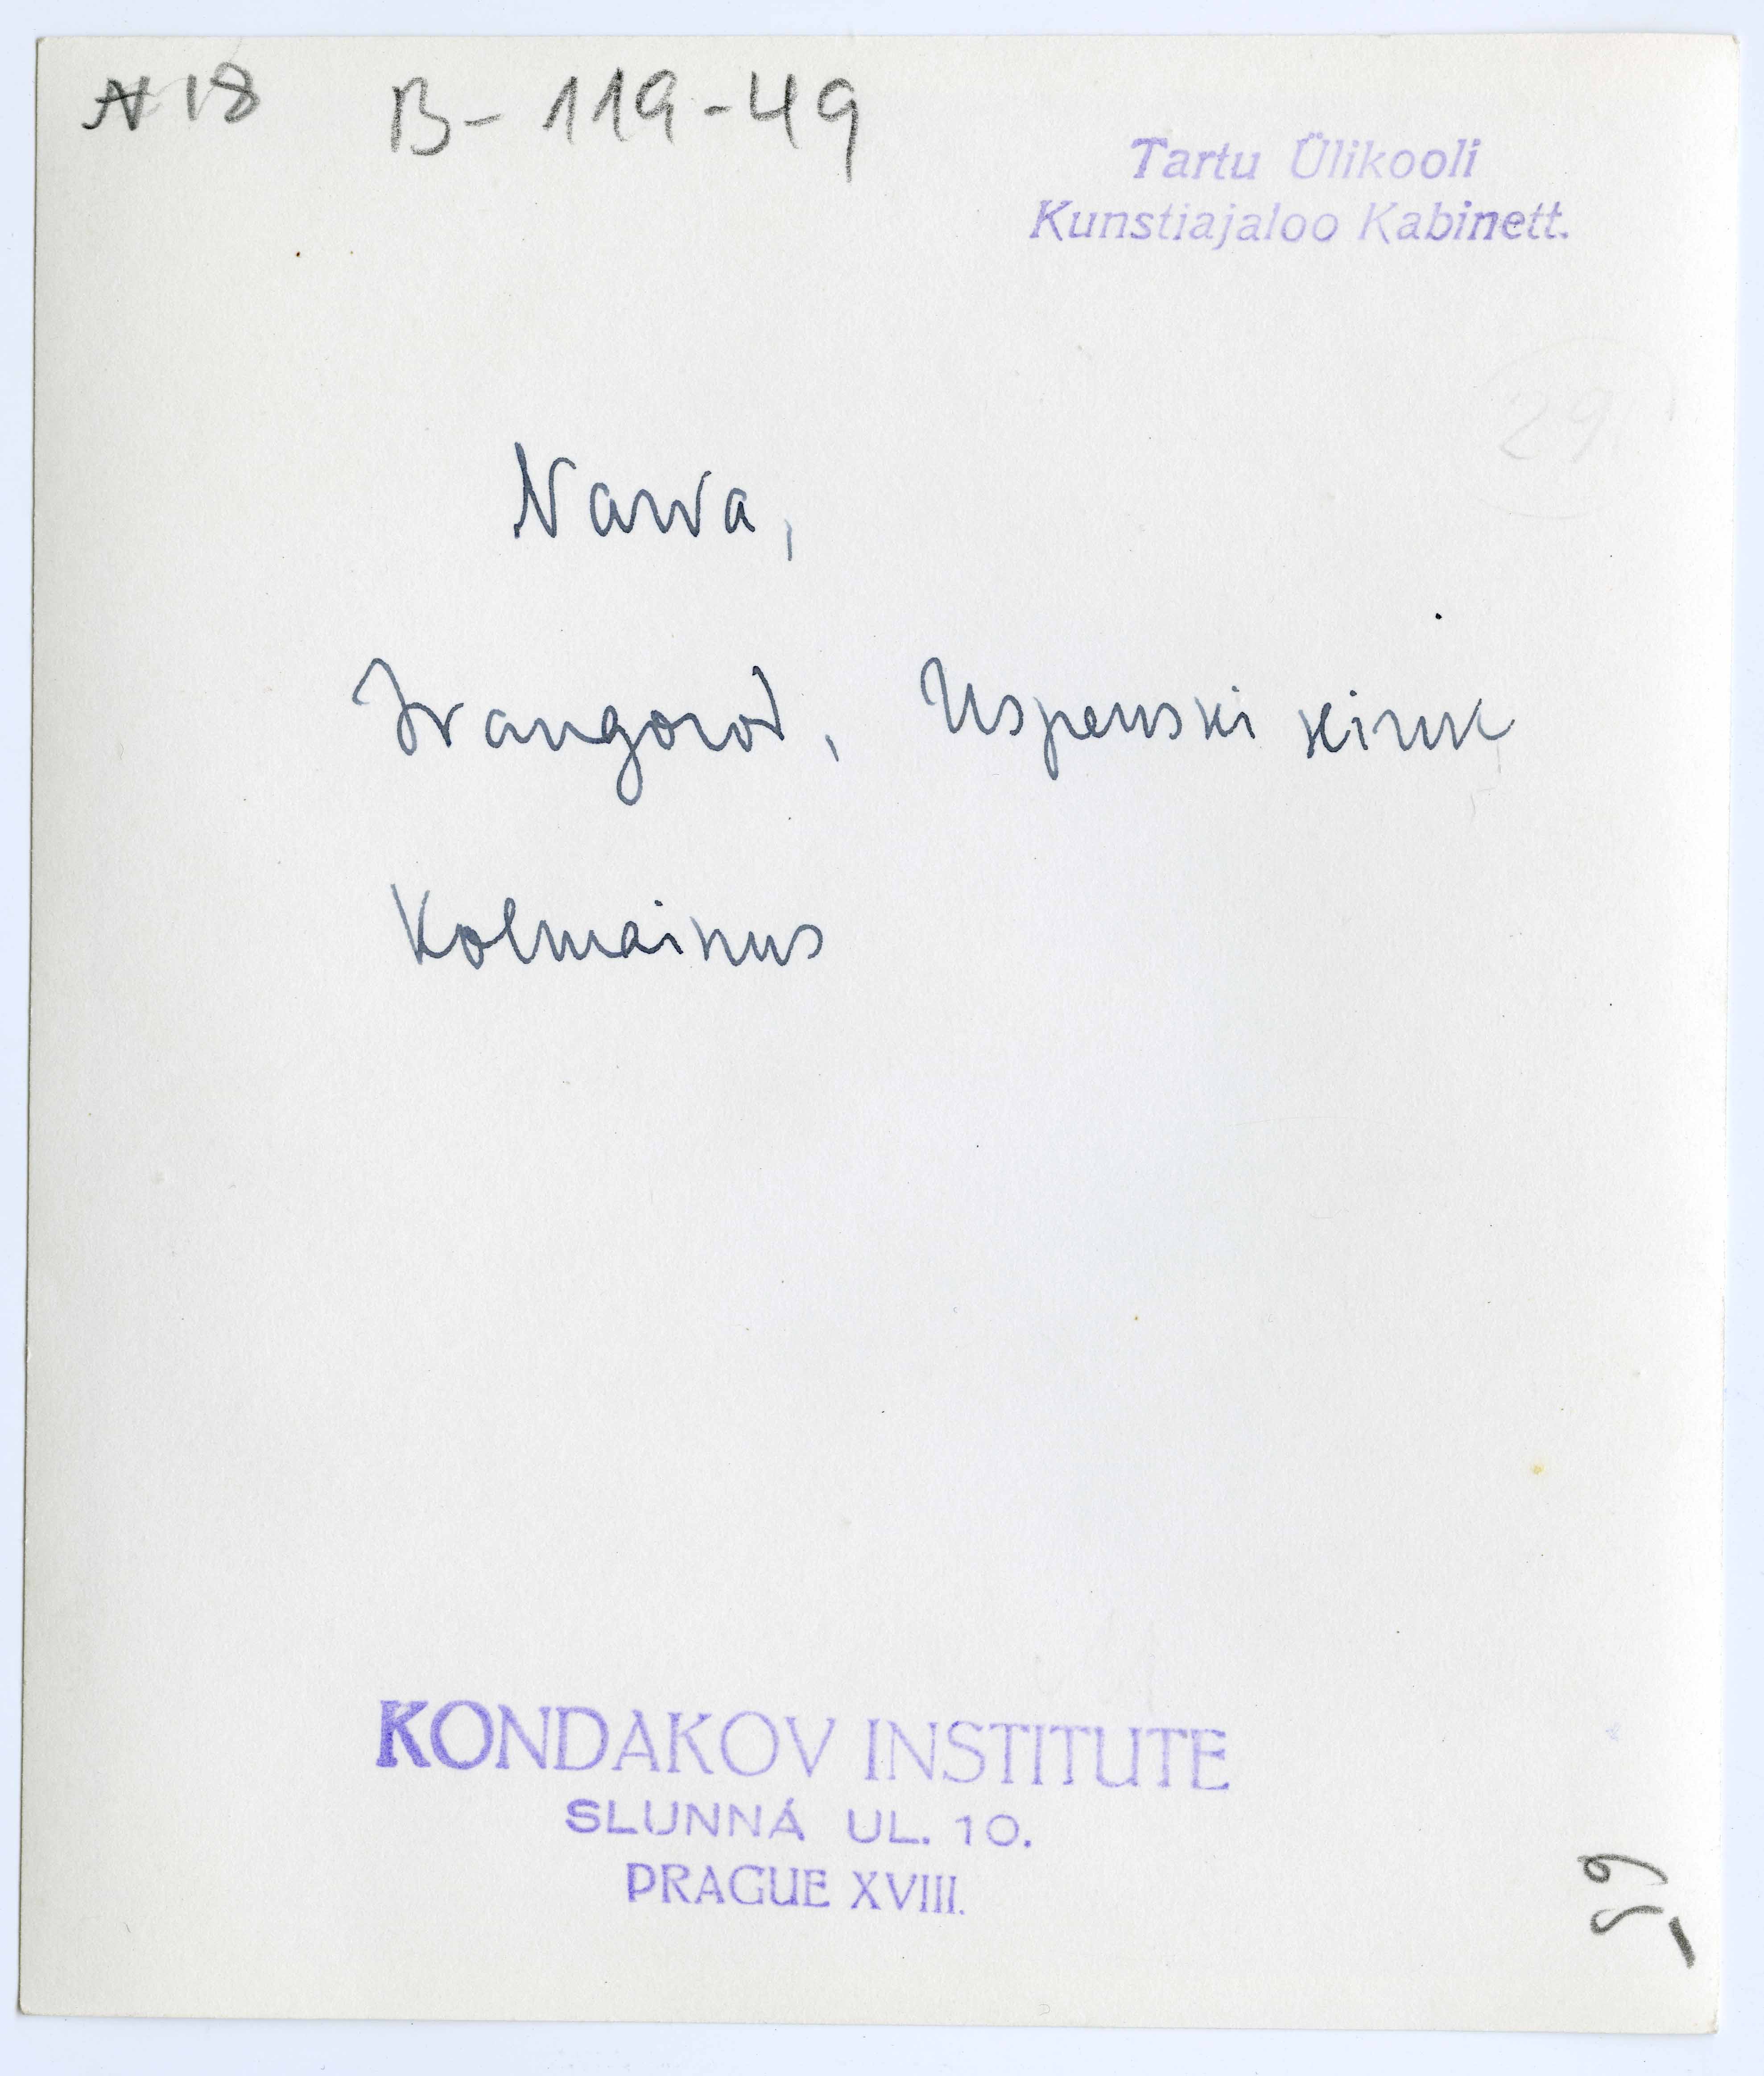 N 18 B-119-49
Tartu Ülikooli
Kunstiajaloo Kabinett.
29
Narva,
Ivangorod, Uspenski kirik
Kolmainus
KONDAKOV INSTITUTE
SLUNNÁ UL. 10.
PRAGUE XVIII.